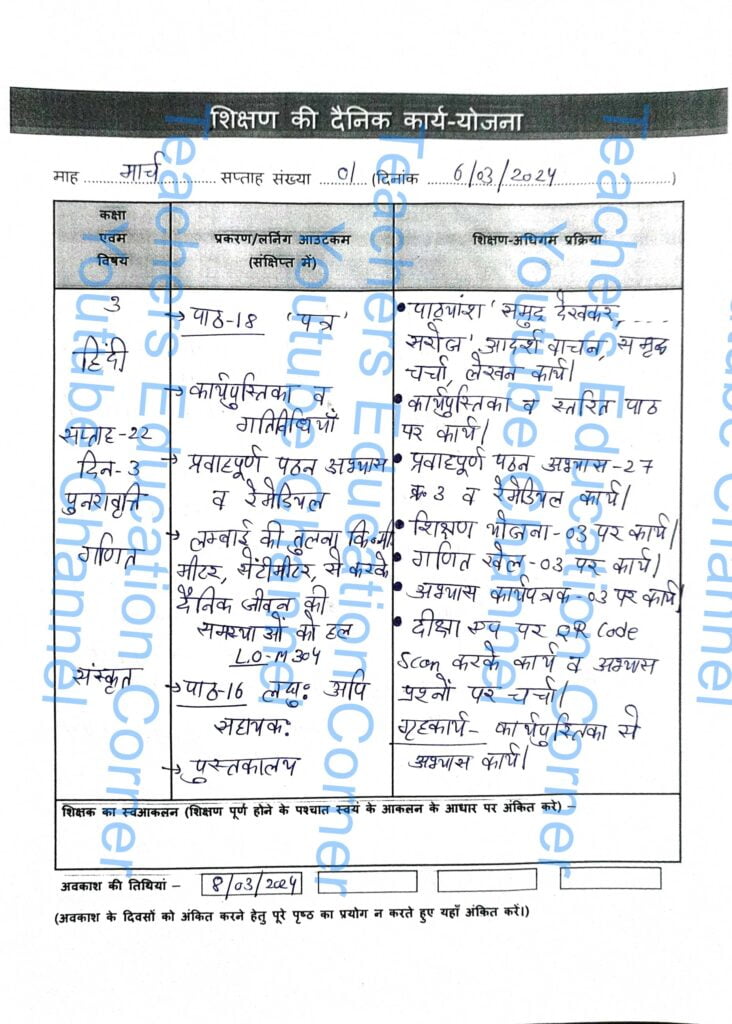 शिक्षण की दैनिक कार्य-योजना
माह मार्च सप्ताह संख्या 01 (दिनांक 6/03/2024)
कक्षा
एवम
विषय
प्रकरण/लर्निंग आउटकम
(संक्षिप्त में)
शिक्षण-अधिगम प्रक्रिया
3
हिंदी
सप्ताह-22
दिन-3
पुनरावृत्ति
गणित
संस्कृत
→ पाठ-18 'पत्र'
→ कार्यपुस्तिका व
गतिविधियाँ
→ प्रवाहपूर्ण पठन अभ्यास
व रेमेडियल
→ लम्बाई की तुलना किमी
मीटर, सेंटीमीटर, से करके
दैनिक जीवन की
समस्याओं को हल
L.O-M304
→ पाठ-16 लघु: अपि
सहायक:
→ पुस्तकालय
• पाठ्यांश 'समुद्र देखकर, ....
सरोज' आदर्श वाचन, समूह
चर्चा, लेखन कार्य।
• कार्यपुस्तिका व स्तरित पाठ
पर कार्य।
• प्रवाहपूर्ण पठन अभ्यास-27
क्र 3 व रेमेडियल कार्य।
• शिक्षण योजना-03 पर कार्य।
• गणित खेल-03 पर कार्य।
• अभ्यास कार्यपत्रक-03 पर कार्य।
• दीक्षा एप पर QR Code
Scan करके कार्य व अभ्यास
प्रश्नों पर चर्चा।
गृहकार्य- कार्यपुस्तिका से
अभ्यास कार्य।
शिक्षक का स्वआकलन (शिक्षण पूर्ण होने के पश्चात स्वयं के आकलन के आधार पर अंकित करे) –
अवकाश की तिथियां – 8/03/2024
(अवकाश के दिवसों को अंकित करने हेतु पूरे पृष्ठ का प्रयोग न करते हुए यहाँ अंकित करें।)
Teachers Education Corner
Youtube Channel
Teachers Education Corner
Youtube Channel
Teachers Education Corner
Youtube Channel